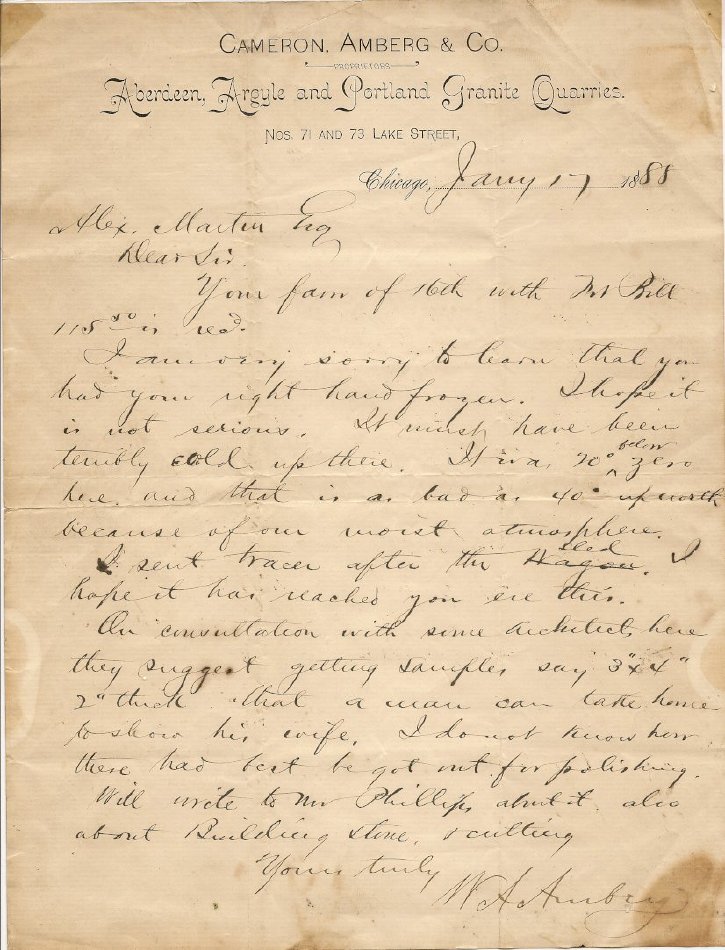 CAMERON, AMBERG & CO.
PROPRIETORS
Aberdeen, Argyle and Portland Granite Quarries.
NOS. 71 AND 73 LAKE STREET,
Chicago, Jany 17 1888
Alex. Martin Esq
Dear Sir.
Your favor of 16th with Frt Bill
115 50 is recd.
I am very sorry to learn that you
had your right hand frozen. I hope it
is not serious. It must have been
terribly cold up there. It was 20° below zero
here and that is as bad as 40° up north
because of our moist atmosphere.
I sent tracer after the Wagon sled. I
hope it has reached you ere this.
On consultation with some architects here
they suggest getting samples say 3"x4"
2" thick that a man can take home
to show his wife. I do not know how
these had best be got out for polishing.
Will write to Mr Phillips about it also
about Building stone, & cutting
Yours truly
W A Amberg